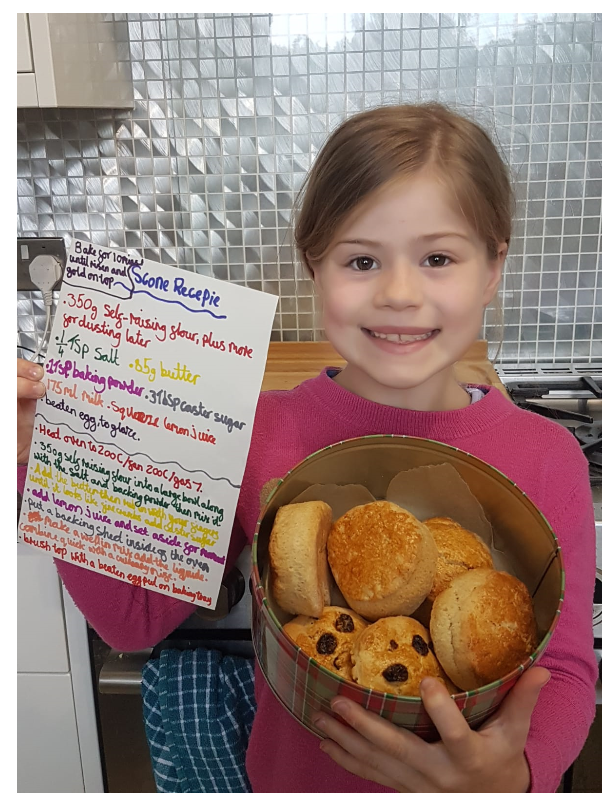 Bake for 10 mins
until risen and
gold on top
Scone Recepie
•350g Self-raising flour, plus more
for dusting later
•1/4 TSP Salt •85g butter
•1TSP baking powder •3TBSP caster sugar
175ml milk •Squeeze lemon juice
•beaten egg to glaze.
•Heat oven to 200C/fan 200C/gas 7.
•350g self raising flour into a large bowl along
with the salt and backing powder then mix it
•Add the butter then rub in with your fingers
until it looks like fine crumbs add the sugar
•add lemon juice and set aside for moment
put a backing shed inside the oven
Make a well in mix add the liquid
combine quick with a cutlery knife.
•brush top with a beaten egg put on baking tray